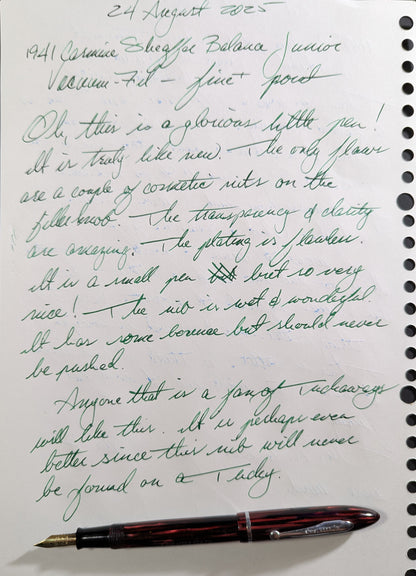 24 August 2025
1941 Carmine Sheaffer Balance Junior
Vacuum-Fil - fine+ point
Oh, this is a glorious little pen!
It is truly like new. The only flaws
are a couple of cosmetic nits on the
filler knob. The transparency & clarity
are amazing. The plating is flawless.
It is a small pen but so very
nice! The nib is wet & wonderful.
It has some bounce but should never
be pushed.
Anyone that is a fan of Tuckaways
will like this. It is perhaps even
better since this nib will never
be found on a Tucky.